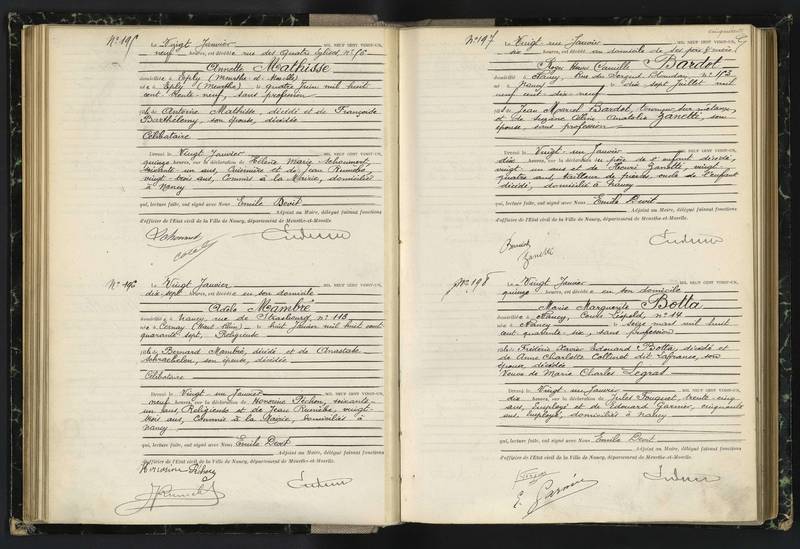 N° 195
Le Vingt Janvier MIL NEUF CENT VINGT-UN,
neuf heures, est décédée rue des Quatre Eglises, n°
Annette Mathisse
domiciliée à Eply (Meurthe et Moselle)
née à Eply (Meurthe) le quatre Juin mil huit
cent trente-neuf, sans profession
fille de Antoine Mathisse, décédé et de Françoise
Barthélemy, son épouse, décédée
Célibataire
Dressé le Vingt Janvier MIL NEUF CENT VINGT-UN,
quinze heures, sur la déclaration de Hélène Marie
soixante un ans, et de Jean
vingt trois ans, Commis à la Mairie, domiciliés
à Nancy
qui, lecture faite, ont signé avec Nous Emile Devit
Adjoint au Maire, délégué faisant fonctions
d'officier de l'Etat civil de la Ville de Nancy, département de Meurthe-et-Moselle.
N° 196
Le Vingt Janvier MIL NEUF CENT VINGT-UN,
dix sept heures, est décédée en son domicile
Adèle Mambré
domiciliée à Nancy, rue de Strasbourg, n° 113
née à Cernay (Haut Rhin) le huit Janvier mil huit cent
quarante sept, Religieuse
fille de Bernard Mambré, décédé et de Anastasie
son épouse, décédée
Célibataire
Dressé le Vingt un Janvier MIL NEUF CENT VINGT-UN,
neuf heures, sur la déclaration de Honorine Péchon, soixante
un ans, Religieuse et de Jean vingt
trois ans, Commis à la Mairie, domiciliés à
Nancy
qui, lecture faite, ont signé avec Nous Emile Devit
Adjoint au Maire, délégué faisant fonctions
d'officier de l'Etat civil de la Ville de Nancy, département de Meurthe-et-Moselle.
Honorine
N° 197
Le Vingt-un Janvier MIL NEUF CENT VINGT-UN,
dix heures, est décédé au domicile de ses père & mère
Roger Henri Camille Bardot
domicilié à Nancy, Rue du Sergent Blandan, n° 103
né à Nancy le dix sept Juillet mil
neuf cent dix-neuf
fils de Jean Marcel Bardot, tourneur sur métaux,
et de Suzanne Zanetti, son
épouse sans profession
Dressé le Vingt-un Janvier MIL NEUF CENT VINGT-UN,
dix heures, sur la déclaration du père de l'enfant décédé,
vingt-un ans et de Henri Zanetti, vingt
quatre ans, tailleur de pierres, oncle de l'enfant
décédé, domicilié à Nancy
qui, lecture faite, ont signé avec Nous Emile Devit
Adjoint au Maire, délégué faisant fonctions
d'officier de l'Etat civil de la Ville de Nancy, département de Meurthe-et-Moselle.
Bardot
Zanetti
N° 198
Le Vingt Janvier MIL NEUF CENT VINGT-UN,
quinze heures, est décédée en son domicile
Marie Marguerite Botta
domiciliée à Nancy, Cours Léopold, n° 14
née à Nancy le seize mars mil huit
cent quarante-six, sans profession
fille de Frédéric Xavier Edouard Botta, décédé et
de Anne Charlotte Collinet dit Lafrance, son
épouse décédée
Veuve de Marie Charles Legras
Dressé le Vingt-un Janvier MIL NEUF CENT VINGT-UN,
dix heures, sur la déclaration de Jules trente-cinq
ans, Employé et de Edouard Garnier, cinquante
ans Employé, domiciliés à Nancy
qui, lecture faite, ont signé avec Nous Emile Devit
Adjoint au Maire, délégué faisant fonctions
d'officier de l'Etat civil de la Ville de Nancy, département de Meurthe-et-Moselle.
E. Garnier